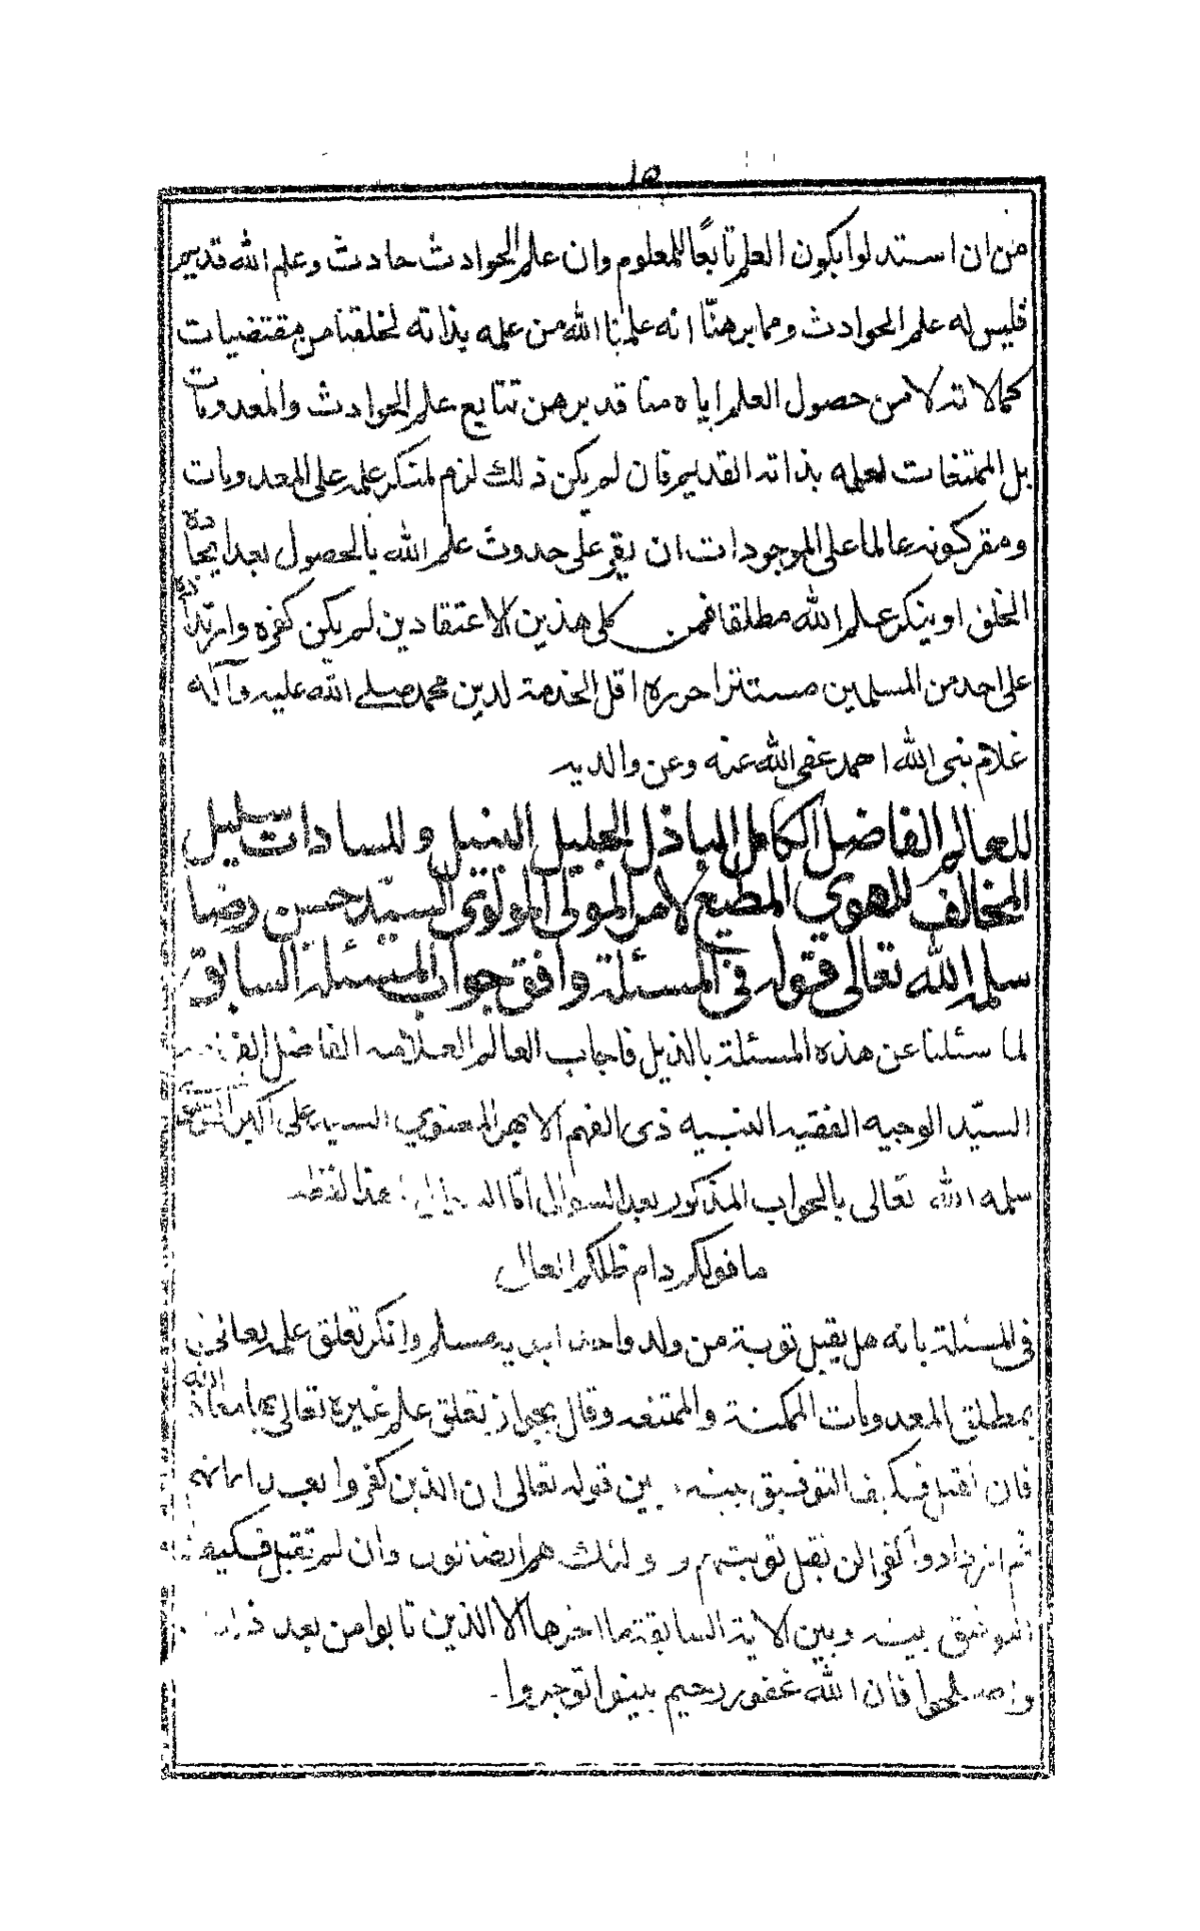 ١٥
من ان استدلوا بكون العلم تابعًا للمعلوم وان علم الحوادث حادث وعلم الله قديم
فليس له علم الحوادث ومما برهنّا انه علمنا الله من علمه بذاته لخلقنا من مقتضيات
كمالاته لا من حصول العلم اياه منا قد برهن تتابع علم الحوادث والمعدومات
بل الممتنعات لعلمه بذاته القديم فان لم يكن ذلك لزم لمنكر علمه على المعدومات
ومقر كونه عالما على الموجودات ان يقر على حدوث علم الله بالحصول بعد ايجاده
الخلق او ينكر علم الله مطلقا فمن كلى هذين الاعتقادين لم يكن كفره وارتداده
على احد من المسلمين مستترا حرره اقل الخدمة لدين محمد صلى الله عليه وآله
غلام نبى الله احمد عفى الله عنه وعن والديه
للعالم الفاضل الكامل الباذل الجليل النبيل وللسادات سليل
المخالف للهوي المطيع لامر المولى المولوى السيّد حسن رضا
سلمه الله تعالى قوله فى المسئلة وافق جواب المسئلة السابق
لما سئلنا عن هذه المسئلة بالذيل فاجاب العالم العلامه الفاضل
السيّد الوجيه الفقيه النبيه ذى الفهم الابهر المعنوي السيد على اكبر
سلمه الله تعالى بالجواب المذكور بعد السوال اما هذا لفظه
ما قولكم دام ظلكم العال
فى المسئلة بانه هل يقبل توبة من ولد واحد ابويه مسلم وانكر تعلق علمه تعالى
بمطلق المعدومات الممكنة والممتنعه وقال بجواز تعلق علم غيره تعالى بها معاذ الله
فان تقبل فكيف التوفيق بينه بين قوله تعالى ان الذين كفروا بعد ايمانهم
ثم ازدادوا كفرا لن تقبل توبتهم و اولئك هم الضالون وان لم تقبل فكيف
التوفيق بينه وبين الاية السابقة بما اخرها الا الذين تابوا من بعد ذلك
واصلحوا فان الله غفور رحيم بينوا توجروا-